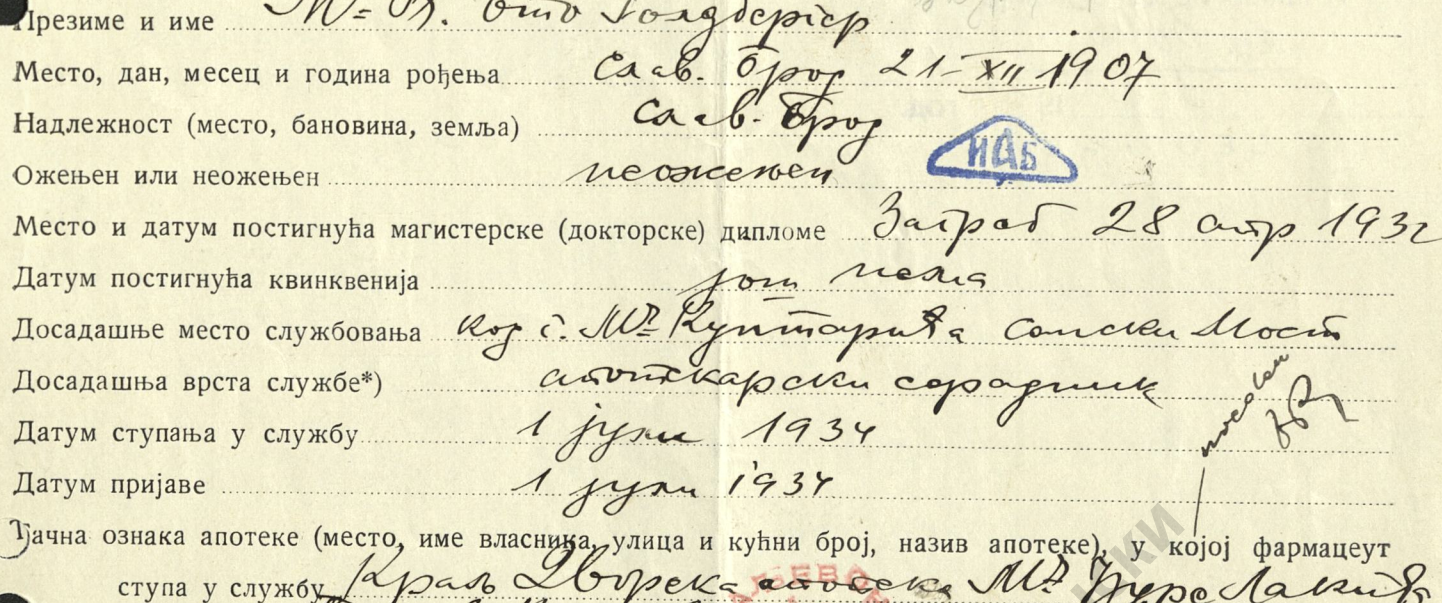 Презиме и име Мр. Ото Голдбергер
Место, дан, месец и година рођења Слав. Брод 21-XII 1907
Надлежност (место, бановина, земља) Слав. Брод
ИАБ
Ожењен или неожењен неожењен
Место и датум постигнућа магистерске (докторске) дипломе Загреб 28 апр 1932
Датум постигнућа квинквенија још нема
Досадашње место службовања код г. Мр Сански Мост
Досадашња врста службе*) апотекарски сарадник
Датум ступања у службу 1 јули 1934
Датум пријаве 1 јули 1934
Тачна ознака апотеке (место, име власника, улица и кућни број, назив апотеке), у којој фармацеут
ступа у службу Краљ. Дворска апотека Мр Ђуре Лакић